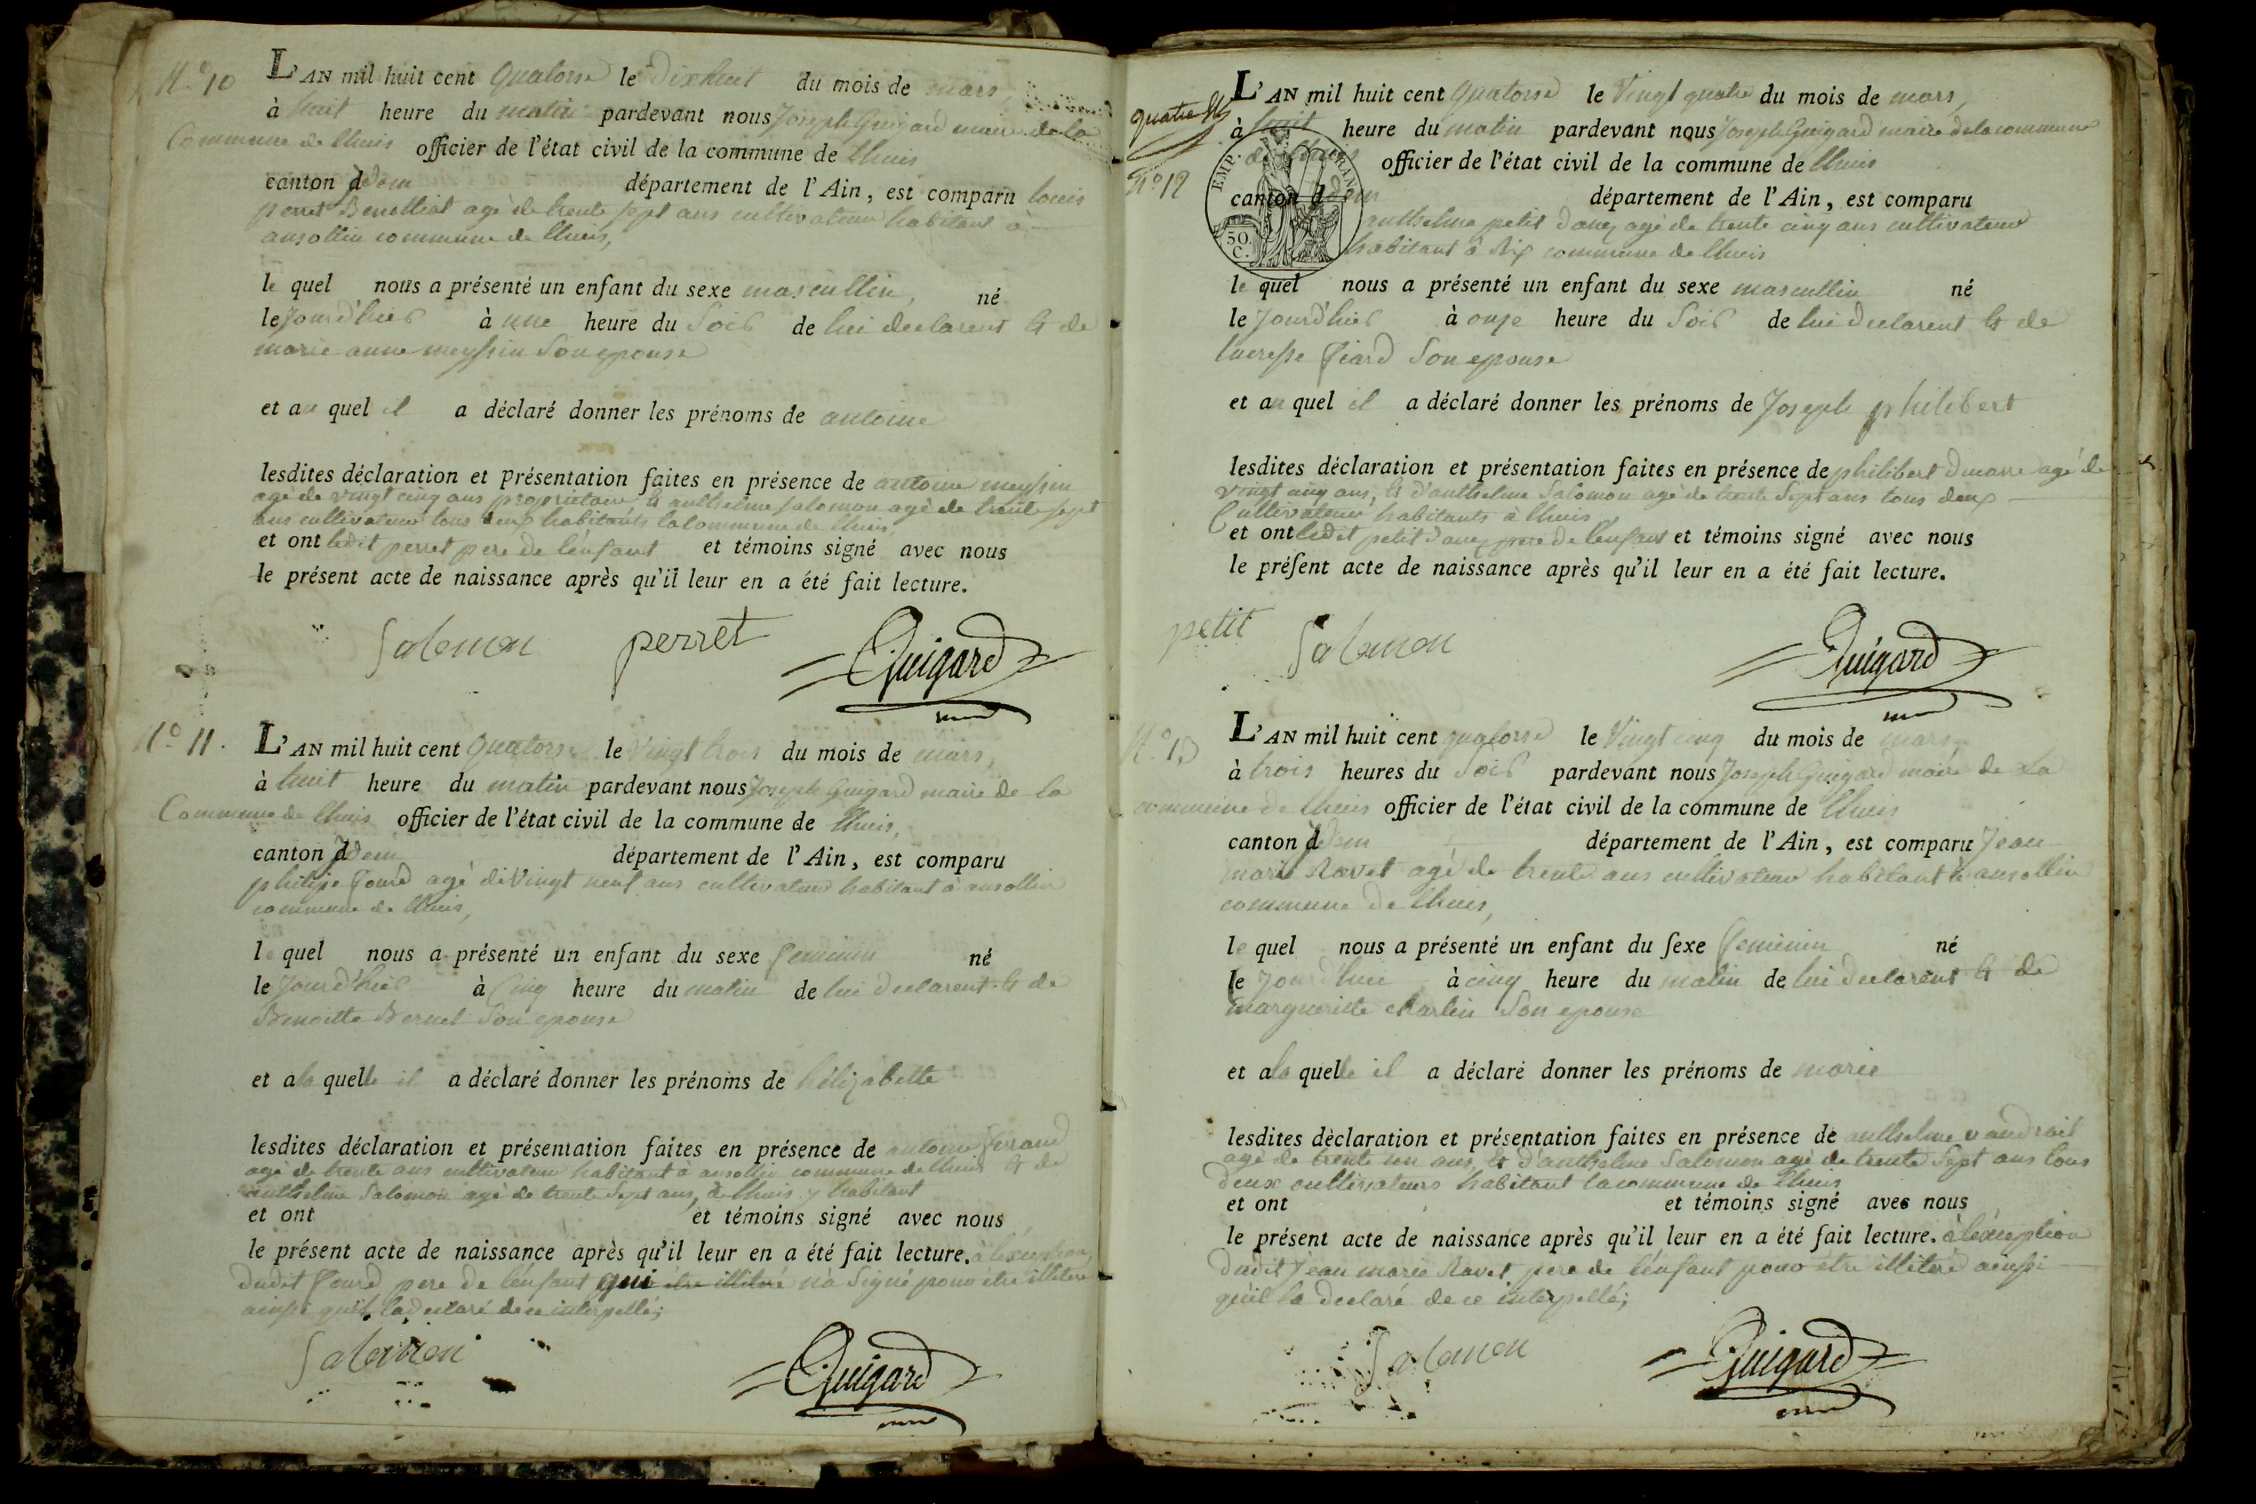 N.º 10
L'AN mil huit cent quatorse le dixhuit du mois de mars,
à huit heure du matin pardevant nous Joseph Guigard maire de la
Commune de lhuis officier de l'état civil de la commune de lhuis
canton d'idem département de l'Ain, est comparu louis
perret Benolliat agé de trente sept ans cultivateur habitant à
ansollin commune de lhuis,
le quel nous a présenté un enfant du sexe mascullin, né
le Jourd'hier à une heure du Soir de lui declarent & de
marie anne meyssin Son epouse
et au quel il a déclaré donner les prénoms de antoine
lesdites déclaration et présentation faites en présence de antoine meyssin
agé de vingt cinq ans propriétaire & anthelme Salomon agé de trente sept
ans cultivateur tous deux habitants la commune de lhuis,
et ont ledit perret pere de l'enfant et témoins signé avec nous
le présent acte de naissance après qu'il leur en a été fait lecture.
Salomon perret Guigard
N.º 11.
L'AN mil huit cent quatorse le Vingt trois du mois de mars,
à huit heure du matin pardevant nous Joseph Guigard maire de la
Commune de lhuis officier de l'état civil de la commune de lhuis,
canton d'idem département de l'Ain, est comparu
philipe fourd agé de Vingt neuf ans cultivateur habitant à ansollin
commune de lhuis,
le quel nous a présenté un enfant du sexe feminin né
le Jourd'hier à Cinq heure du matin de lui declarent & de
Benoitte Bernet Son epouse
et a la quelle il a déclaré donner les prénoms de hélizabette
lesdites déclaration et présentation faites en présence de antoine feraud
agé de trente ans cultivateur habitant à ansollin commune de lhuis & de
anthelme Salomon agé de trente Sept ans, à lhuis y habitant
et ont et témoins signé avec nous
le présent acte de naissance après qu'il leur en a été fait lecture. à l'exception
dudit fourd pere de l'enfant qui etre illitéré n'a Signé pour etre illiteré
ainssi qu'il la declaré de ce interpellé;
Salomon Guigard
quatre
N.º 12
EMP. FRAN.
50. C.
L'AN mil huit cent quatorse le Vingt quatre du mois de mars,
à huit heure du matin pardevant nous Joseph Guigard maire de la commune
de lhuis officier de l'état civil de la commune de lhuis
canton d'idem département de l'Ain, est comparu
anthelme petit Danz agé de trente cinq ans cultivateur
habitant à Rix commune de lhuis
le quel nous a présenté un enfant du sexe mascullin né
le Jourd'hier à onze heure du Soir de lui declarent & de
lucresse fiard Son epouse
et au quel il a déclaré donner les prénoms de Joseph philibert
lesdites déclaration et présentation faites en présence de philibert agé de
vingt cinq ans, & d'anthelme Salomon agé de trente Sept ans tous deux
Cultivateur habitants à lhuis
et ont ledit petit pere de l'enfant et témoins signé avec nous
le présent acte de naissance après qu'il leur en a été fait lecture.
petit Salomon Guigard
N.º 13
L'AN mil huit cent quatorse le Vingt cinq du mois de mars,
à trois heures du Soir pardevant nous Joseph Guigard maire de La
commune de lhuis officier de l'état civil de la commune de lhuis
canton d'idem département de l'Ain, est comparu Jean
marie Ravet agé de trente ans cultivateur habitant à ansollin
commune de lhuis,
le quel nous a présenté un enfant du sexe feminin né
le Jourd'hui à cinq heure du matin de lui declarent & de
margueritte Martin Son epouse
et a la quelle il a déclaré donner les prénoms de marie
lesdites déclaration et présentation faites en présence de anthelme
agé de trente un ans, & d'anthelme Salomon agé de trente Sept ans tous
deux cultivateurs habitant la commune de lhuis
et ont et témoins signé avec nous
le présent acte de naissance après qu'il leur en a été fait lecture. à l'exception
dudit Jean marie Ravet pere de l'enfant pour etre illiteré ainssi
qu'il la declaré de ce interpellé;
Salomon Guigard